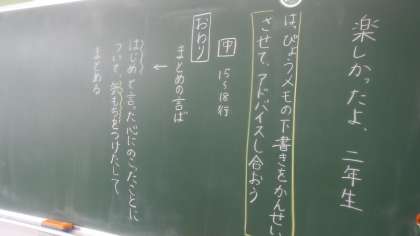 楽しかったよ、二年生
はっぴょうメモの下書きをかんせい
させて、アドバイスし合おう
中
15〜18行
おわり
まとめの言ば
←
はじめて言った心にのこったことに
ついて、気もちをつけたして、
まとめる